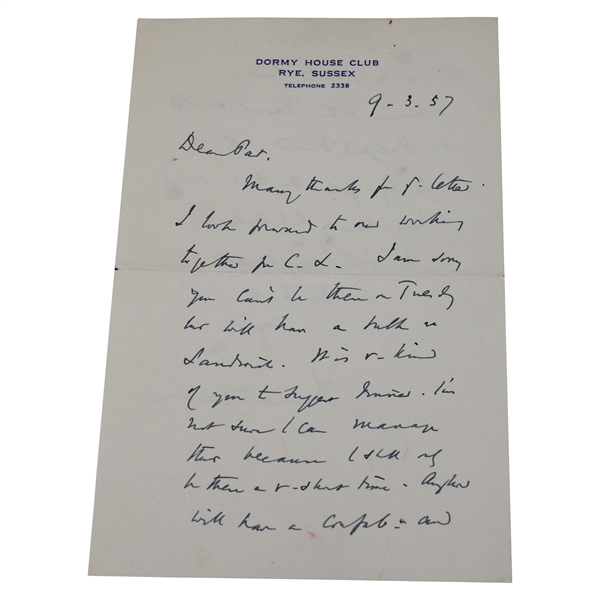 DORMY HOUSE CLUB
RYE, SUSSEX
TELEPHONE 2338
9-3-57
Dear Pat.
Many thanks for yr letter.
I look forward to our working
together for C.L. I am sorry
you can't be there on Tuesday
but will have a talk at
Sandwich. It is v-kind
of you to suggest dinner. I'm
not sure I can manage
this because I shall only
be there a v-short time. Anyhow
will have a confab - and